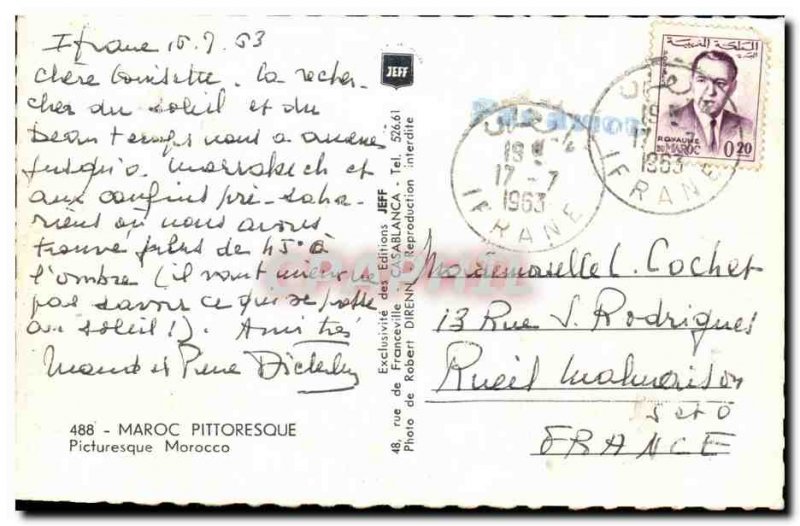 Ifrane 15.7.63
Chère Louisette. La recher-
cher du soleil et du
beau temps nous a amené
jusqu'à Marrakech et
aux confins pré-saha-
riens où nous avons
trouvé plus de 45° à
l'ombre (il vaut
pas savoir ce qui se passe
au soleil!). Amitiés
488 - MAROC PITTORESQUE
Picturesque Morocco
JEFF
Exclusivité des Editions JEFF
48, rue de Franceville - CASABLANCA - Tel. 526.61
Photo de Robert DIRENN Reproduction interdite
المملكة المغربية
ROYAUME
DU MAROC
0,20
17 - 7
1963
IFRANE
17 - 7
1963
IFRANE
Mademoiselle L. Cochet
13 Rue J. Rodrigues
Rueil Malmaison
S et O
FRANCE